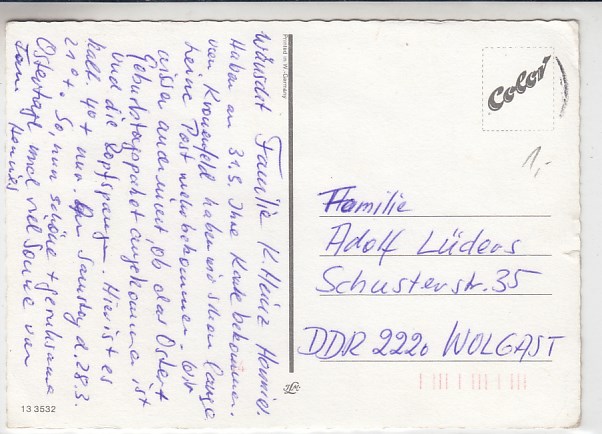 wünscht Familie K. Heinz Hennig.
Haben am 31.3. Ihre Karte bekommen.
von Kronenfeld haben wir schon lange
keine Post mehr bekommen. Wir
wissen auch nicht, ob das Oster +
Geburtstagspaket angekommen ist
und die Hier ist es
kalt 40+ nur. Am Samstag d. 28.3.
210+. So, nun schöne + gemeinsame
Ostertage und viel Sonne von
Fam. Hennig
Printed in W.-Germany
13 3532
Color
1,-
Familie
Adolf Lüders
Schusterstr. 35
DDR 2220 WOLGAST